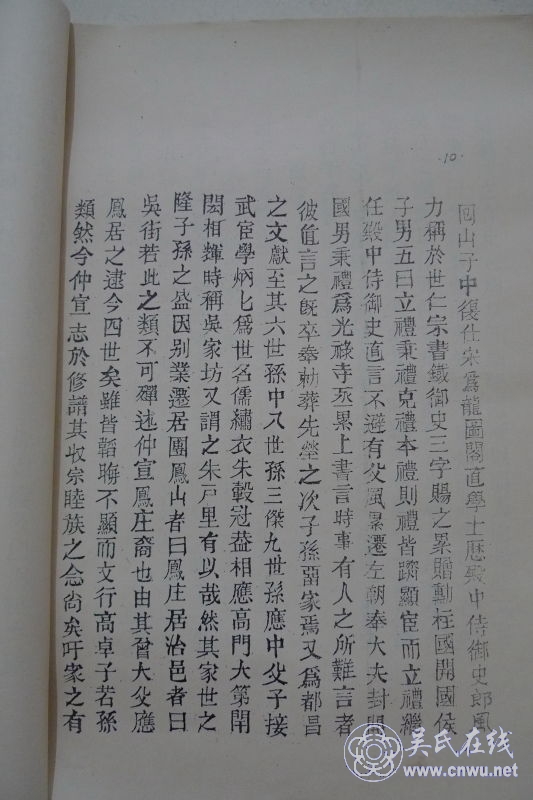 10.
回山子中復仕宋為龍圖閣直學士歷殿中侍御史郎風
力稱於世仁宗書鐵御史三字賜之累贈勳柱國開國侯
子男五曰立禮秉禮克禮本禮則禮皆躋顯宦而立禮繼
任殿中侍御史直言不避有父風累遷左朝奉大夫封開
國男秉禮爲光祿寺丞累上書言時事有人之所難言者
彼直言之旣卒奉勅葬先塋之次子孫因家焉又爲都昌
之文獻至其六世孫中八世孫三傑九世孫應中父子接
武宦學炳匕爲世名儒繡衣朱轂冠葢相應高門大第閈
閎相輝時稱吳家坊又謂之朱戸里有以哉然其家世之
隆子孫之盛因別業遷居團鳳山者曰鳳庄居治邑者曰
吳街若此之類不可殫述仲宣鳳庄裔也由其曾大父應
鳳居之逮今四世矣雖皆韜晦不顯而文行高卓子若孫
類然今仲宣志於修譜其收宗睦族之念尙矣吁家之有
吴氏在线
www.cnwu.net